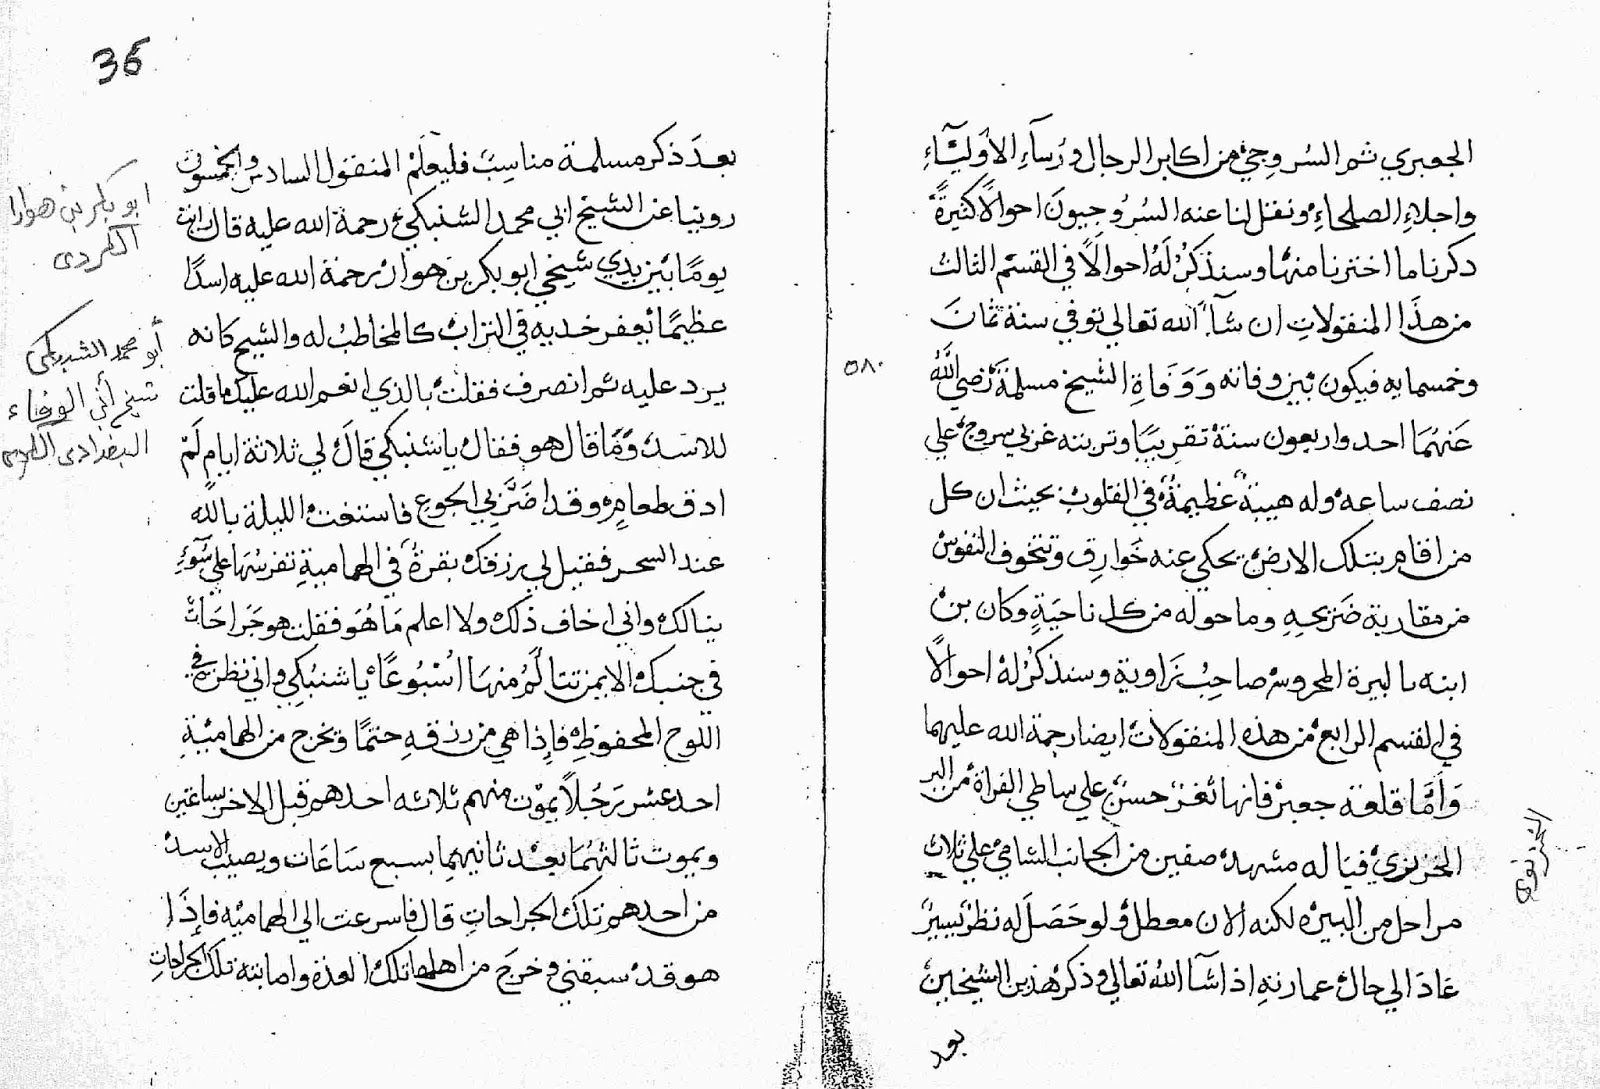 الجعبري ثم السروجي من اكابر الرجال ورساء الاولياء
واجلاء الصلحاء ونقل لنا عنه السروجيون احوالا كثيرة
ذكرنا ما اخترنا منها وسنذكر له احوالا في القسم الثالث
من هذا المنقولات ان شاء الله تعالي توفي سنة ثمان
وخمسمايه فيكون بين وفاته ووفاة الشيخ مسلمة رضي الله
عنهما احد واربعون سنة تقريبا وتربته غربي سروج علي
نصف ساعه وله هيبة عظيمة في القلوب بحيث ان كل
من اقام بتلك الارض يحكي عنه خوارق وتتخوف النفوس
من مقاربة ضريحه وما حوله من كل ناحية وكان بن
ابنه بالبيرة المحروس صاحب زاوية وسنذكر له احوالا
في القسم الرابع من هذه المنقولات ايضا رحمة الله عليهما
واما قلعة جعبر فانها ثغر حسن علي ساطي الفراة من البر
الجزيزي قباله مشهد صفين من الجانب الشامي علي ثلاث
مراحل من البيره لكنه الان معطل ولو حصل له نظر يسير
عاد الي حال عمارته اذا شا الله تعالي وذكر هذين الشيخين
بعد
٥٨٠
36
بعد ذكر مسلمة مناسب فليعلم المنقول السادس والخمسون
روينا عن الشيخ ابي محمد الشنبكي رحمة الله عليه قال رايت
يوما بين يدي شيخي ابو بكر بن هوار رحمة الله عليه اسدا
عظيما يعفر خديه في التراب كالمخاطب له والشيخ كانه
يرد عليه ثم انصرف فقلت بالذي انعم الله عليك ما قلت
للاسد وما قال هو فقال يا شنبكي قال لي ثلاثة ايام لم
اذق طعام وقد اضر بي الجوع فاستغثت الليلة بالله
عند السحر فقيل لي رزقك بقرة في الهمامية تفرسها علي سوء
ينالك واني اخاف ذلك ولا اعلم ما هو فقلت هو جراحات
في جنبك الايمن تتالم منها اسبوعا يا شنبكي واني نظرت في
اللوح المحفوظ فاذا هي من رزقه حتما وتخرج من الهمامية
احد عشر رجلا يموت منهم ثلاثه احدهم قبل الاخر بساعتين
ويموت ثالثهما بعد ثانيهما بسبع ساعات ويصيب الاسد
من احدهم تلك الجراحات قال فاسرعت الي الهماميه فاذا
هو قد سبقني وخرج من اهلها تلك العدة واصابته تلك الجراحات
ابو بكر بن هوارا
الكردي
أبو محمد الشنبكي
شيخ أبي الوفاء
البغدادي الكردي